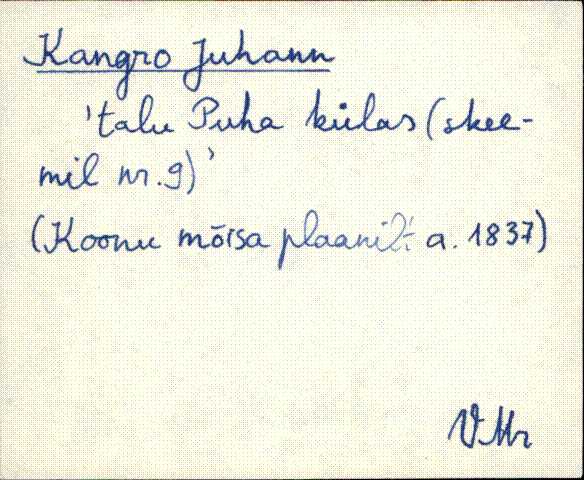 Kangro Juhann
'talu Puha külas (skee-
mil nr. 9)'
(Koonu mõisa plaanilt a. 1837)
VMr